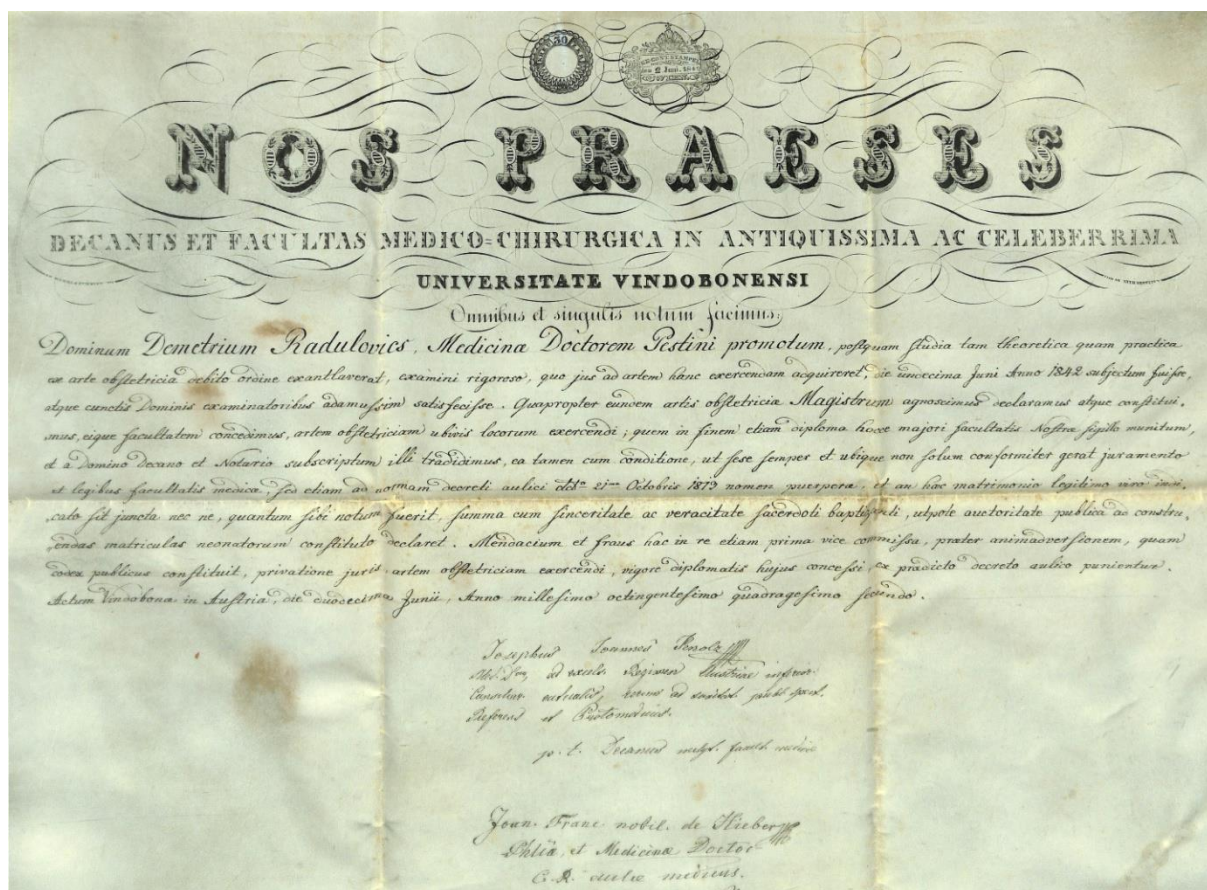 30
NOS PRAESES
DECANUS ET FACULTAS MEDICO=CHIRURGICA IN ANTIQUISSIMA AC CELEBERRIMA
UNIVERSITATE VINDOBONENSI
Omnibus et singulis notum facimus;
Dominum Demetrium Radulovics, Medicinæ Doctorem Pestini promotum, postquam studia tam theoretica quam practica
ex arte obstetricia debito ordine exantlaverat, examini rigoroso, quo jus ad artem hanc exercendam acquireret, die undecima Juni Anno 1842 subjectum fuisse,
atque cunctis Dominis examinatoribus adamussim satisfecisse. Quapropter eundem artis obstetriciæ Magistrum agnoscimus declaramus atque constitui,
mus, eique facultatem concedimus, artem obstetriciam ubivis locorum exercendi; quem in finem etiam diploma hocce majori facultatis Nostræ sigillo munitum,
et a Domino Decano et Notario subscriptum illi tradidimus, ea tamen cum conditione, ut sese semper et ubique non solum conformiter gerat juramento
et legibus facultatis medicæ, sed etiam ad normam decreti aulici Octobris 1813 nomen puerperæ, et an hæc matrimonio legitimo viro indi,
cato sit juncta nec ne, quantum sibi notum fuerit, summa cum sinceritate ac veracitate sacerdoti baptisanti, utpote auctoritate publica ad constru,
endas matriculas neonatorum constituto declaret. Mendacium et fraus hac in re etiam prima vice commissa, præter animadversionem, quam
codex publicus constituit, privatione juris artem obstetriciam exercendi, vigore diplomatis hujus concessi, ex prædicto decreto aulico punientur.
Actum Vindobonæ in Austria, die duodecima Junii, Anno millesimo octingentesimo quadragesimo secundo.
Josephus Joannes
ad Regimen Austriae
ad
et Protomedicus.
p. t. Decanus
Joan. Franc. nobil. de
et Medicinæ Doctor
C. R. aulæ medicus.